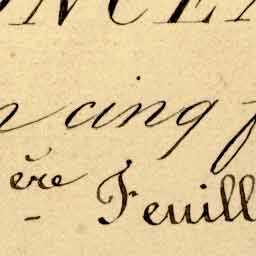 ONCE
n cinq f
ère Feuill